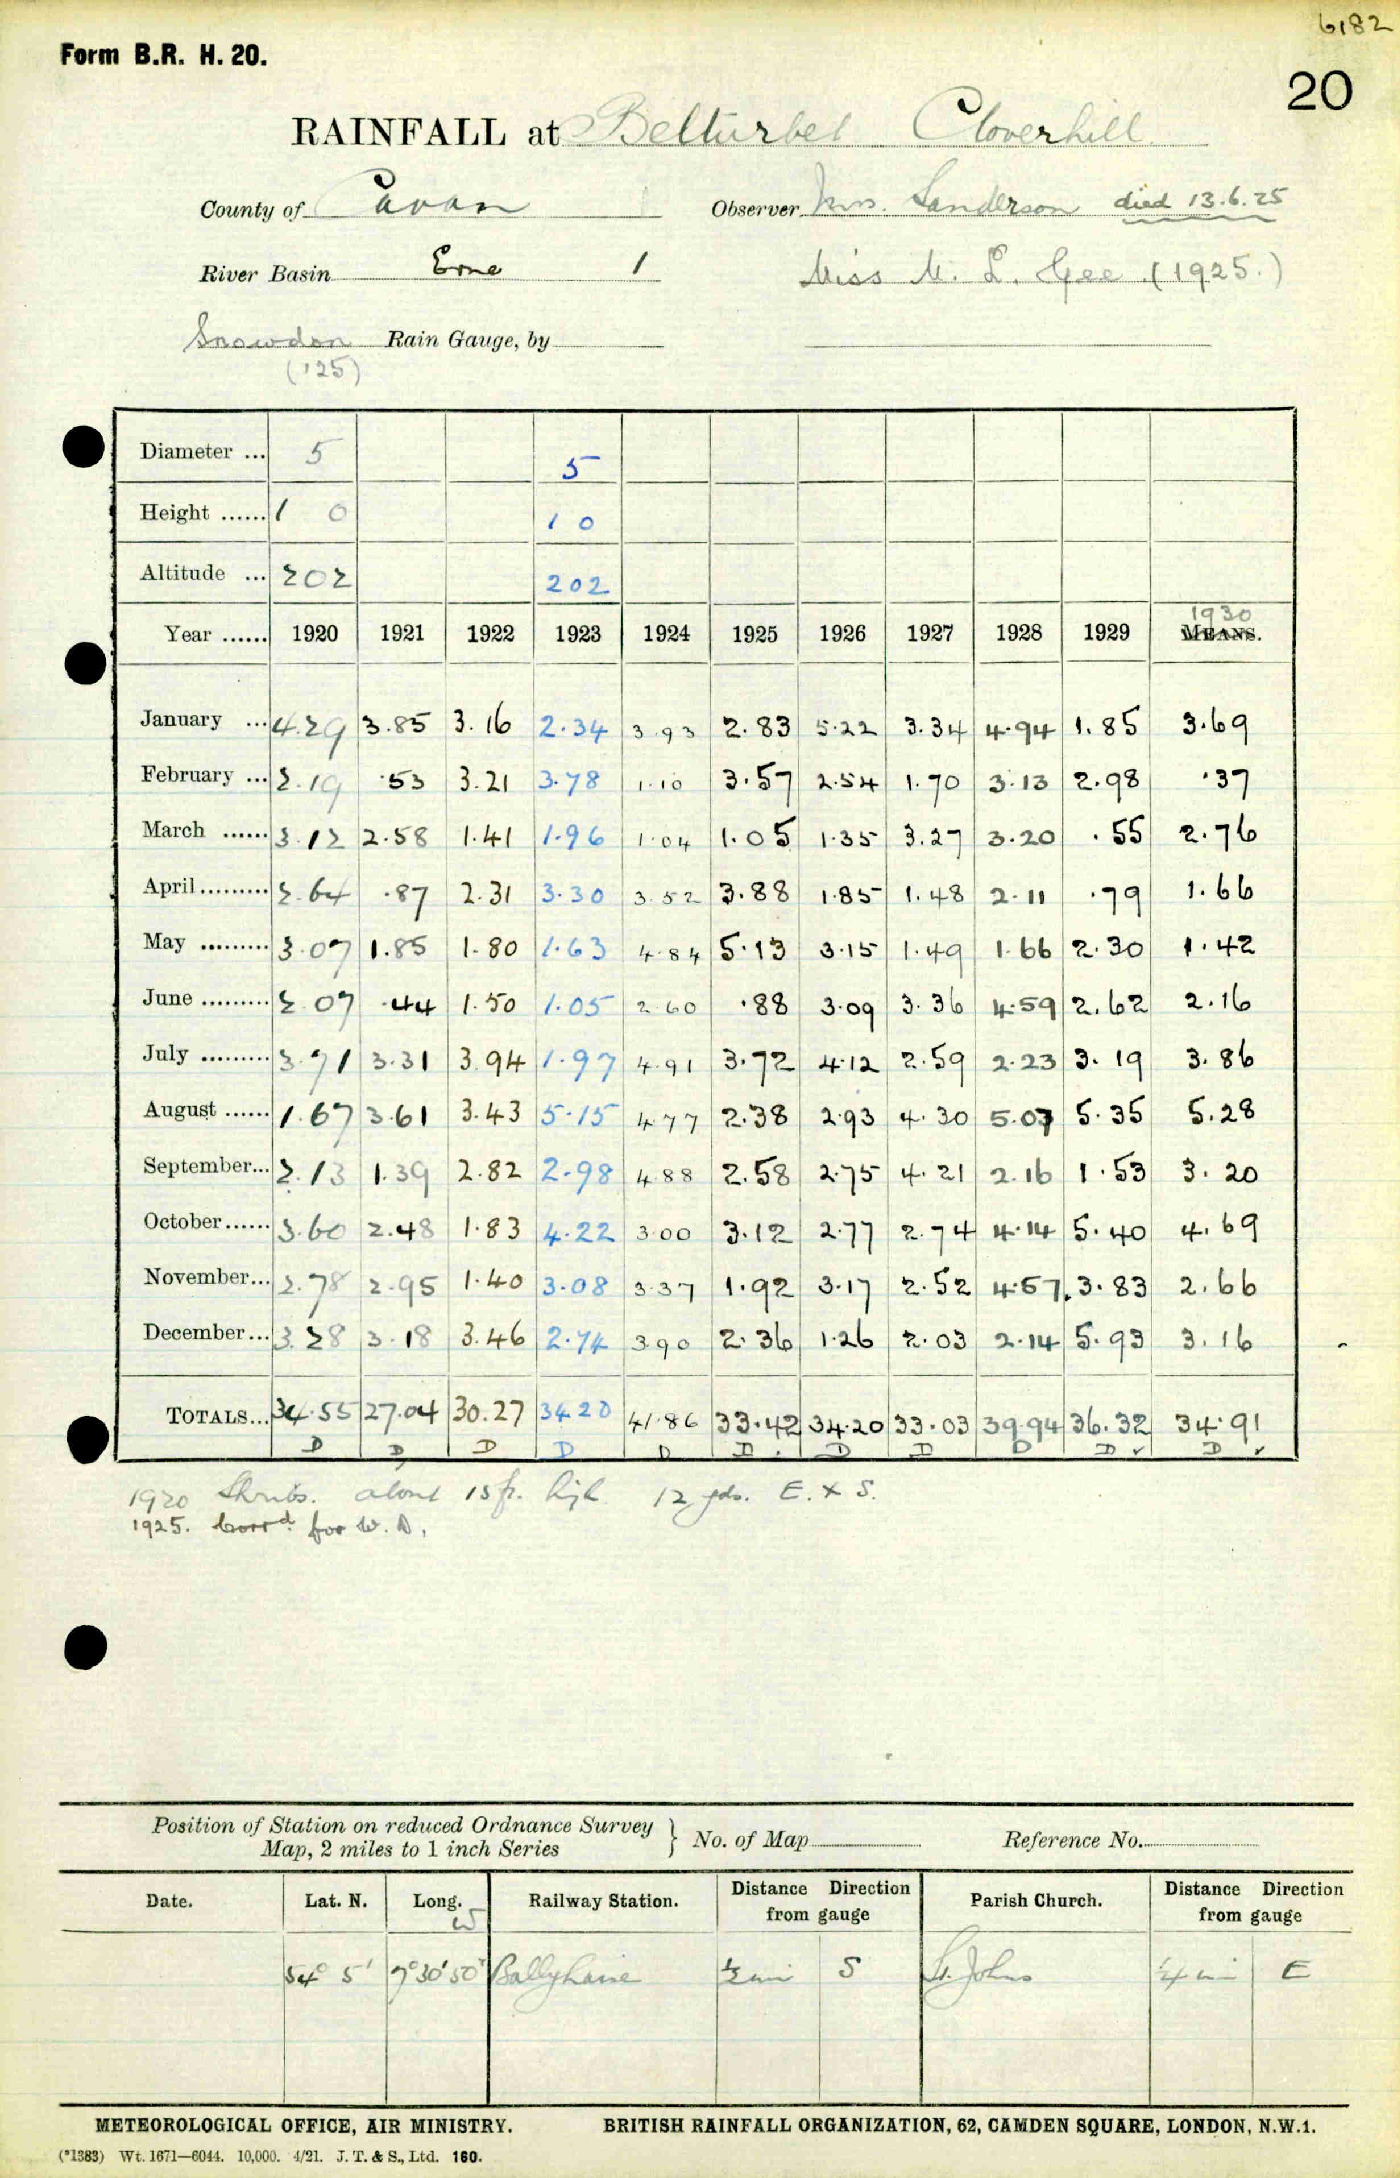 6182
Form B.R. H. 20.
20
RAINFALL at Belturbet Cloverhill
County of Cavan Observer Mrs. Sanderson died 13.6.25
River Basin Erne 1 Miss M. L. Gee (1925.)
Snowdon Rain Gauge, by
('25)
Diameter ... 5 5
Height ...... 1 0 1 0
Altitude ... 202 202
1930
Year ...... 1920 1921 1922 1923 1924 1925 1926 1927 1928 1929 MEANS.
January ... 4.29 3.85 3.16 2.34 3.93 2.83 5.22 3.34 4.94 1.85 3.69
February ... 2.19 .53 3.21 3.78 1.10 3.57 2.54 1.70 3.13 2.98 .37
March ...... 3.12 2.58 1.41 1.96 1.04 1.05 1.35 3.27 3.20 .55 2.76
April ......... 2.64 .87 2.31 3.30 3.52 3.88 1.85 1.48 2.11 .79 1.66
May ......... 3.07 1.85 1.80 1.63 4.84 5.13 3.15 1.49 1.66 2.30 1.42
June ......... 2.07 .44 1.50 1.05 2.60 .88 3.09 3.36 4.59 2.62 2.16
July ......... 3.71 3.31 3.94 1.97 4.91 3.72 4.12 2.59 2.23 3.19 3.86
August ...... 1.67 3.61 3.43 5.15 4.77 2.38 2.93 4.30 5.07 5.35 5.28
September... 2.13 1.39 2.82 2.98 4.88 2.58 2.75 4.21 2.16 1.53 3.20
October...... 3.60 2.48 1.83 4.22 3.00 3.12 2.77 2.74 4.14 5.40 4.69
November... 2.78 2.95 1.40 3.08 3.37 1.92 3.17 2.52 4.67 3.83 2.66
December... 3.28 3.18 3.46 2.74 3.90 2.36 1.26 2.03 2.14 5.93 3.16
TOTALS... 34.55 27.04 30.27 34.20 41.86 33.42 34.20 33.03 39.94 36.32 34.91
D D D D D D D D D D ✓ D ✓
1920 Shrubs. about 15 ft. high 12 yds. E. & S.
1925. Corrd. for W. D.
Position of Station on reduced Ordnance Survey
Map, 2 miles to 1 inch Series } No. of Map Reference No.
Date. Lat. N. Long. W Railway Station. Distance Direction from gauge Parish Church. Distance Direction from gauge
54° 5' 7° 30' 50" Ballyhaise ½ mi S St. Johns ¼ mi E
METEOROLOGICAL OFFICE, AIR MINISTRY. BRITISH RAINFALL ORGANIZATION, 62, CAMDEN SQUARE, LONDON, N.W.1.
(*1383) Wt. 1671—6044. 10,000. 4/21. J. T. & S., Ltd. 160.